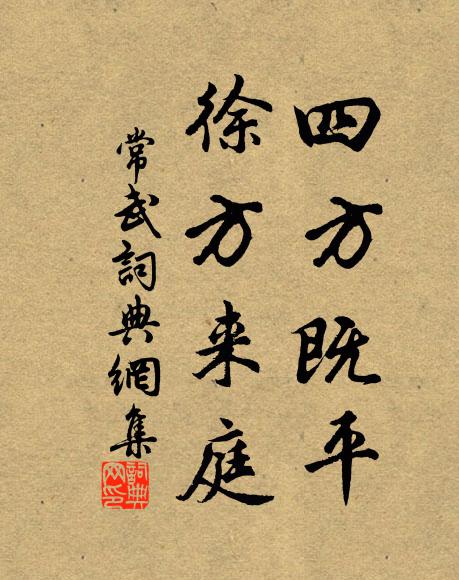 四方既平
徐方来庭
常武詞典網集
詞典網印